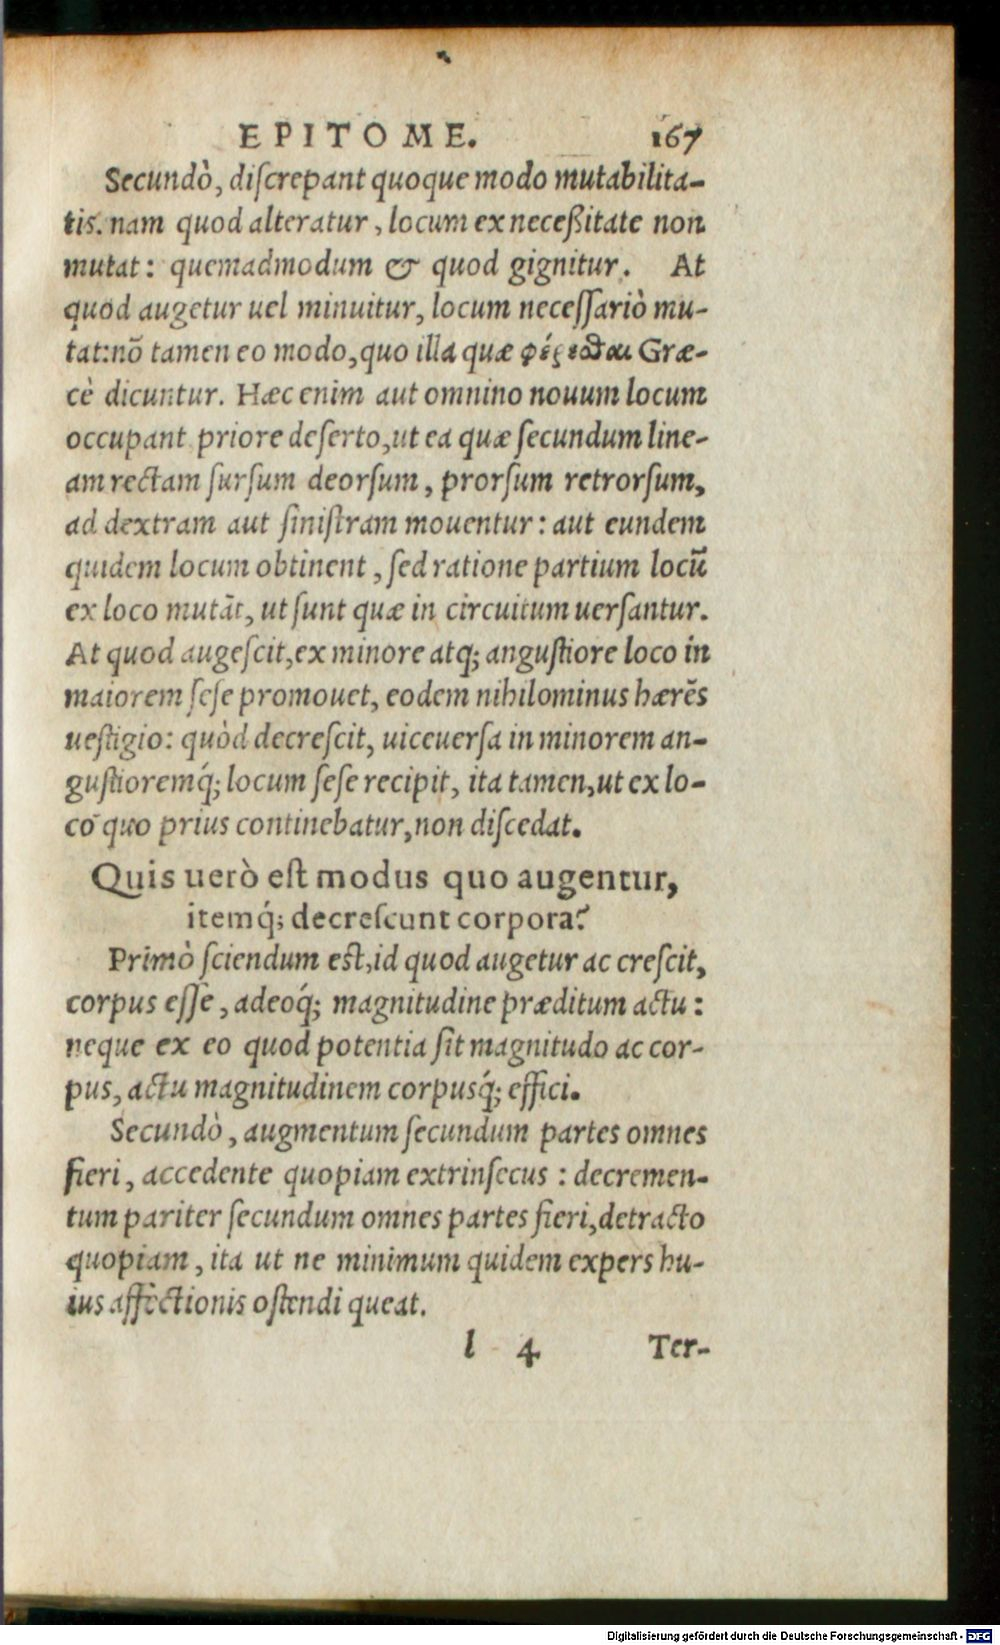 EPITOME. 167
Secundò, diſcrepant quoque modo mutabilita-
tis. nam quod alteratur, locum ex neceßitate non
mutat: quemadmodum & quod gignitur. At
quod augetur uel minuitur, locum neceſſariò mu-
tat: nō tamen eo modo, quo illa quæ φέρεσθαι Græ-
cè dicuntur. Hæc enim aut omnino nouum locum
occupant priore deſerto, ut ea quæ ſecundum line-
am rectam ſurſum deorſum, prorſum retrorſum,
ad dextram aut ſiniſtram mouentur: aut eundem
quidem locum obtinent, ſed ratione partium locū
ex loco mutāt, ut ſunt quæ in circuitum uerſantur.
At quod augeſcit, ex minore atq; anguſtiore loco in
maiorem ſeſe promouet, eodem nihilominus hærēs
ueſtigio: quòd decreſcit, uiceuerſa in minorem an-
guſtioremq́; locum ſeſe recipit, ita tamen, ut ex lo-
co quo prius continebatur, non diſcedat.
Quis uerò eſt modus quo augentur,
itemq́; decreſcunt corpora?
Primò ſciendum eſt, id quod augetur ac creſcit,
corpus eſſe, adeoq́; magnitudine præditum actu:
neque ex eo quod potentia ſit magnitudo ac cor-
pus, actu magnitudinem corpusq́; effici.
Secundò, augmentum ſecundum partes omnes
fieri, accedente quopiam extrinſecus: decremen-
tum pariter ſecundum omnes partes fieri, detracto
quopiam, ita ut ne minimum quidem expers hu-
ius affectionis oſtendi queat.
l 4 Ter-
Digitalisierung gefördert durch die Deutsche Forschungsgemeinschaft - DFG